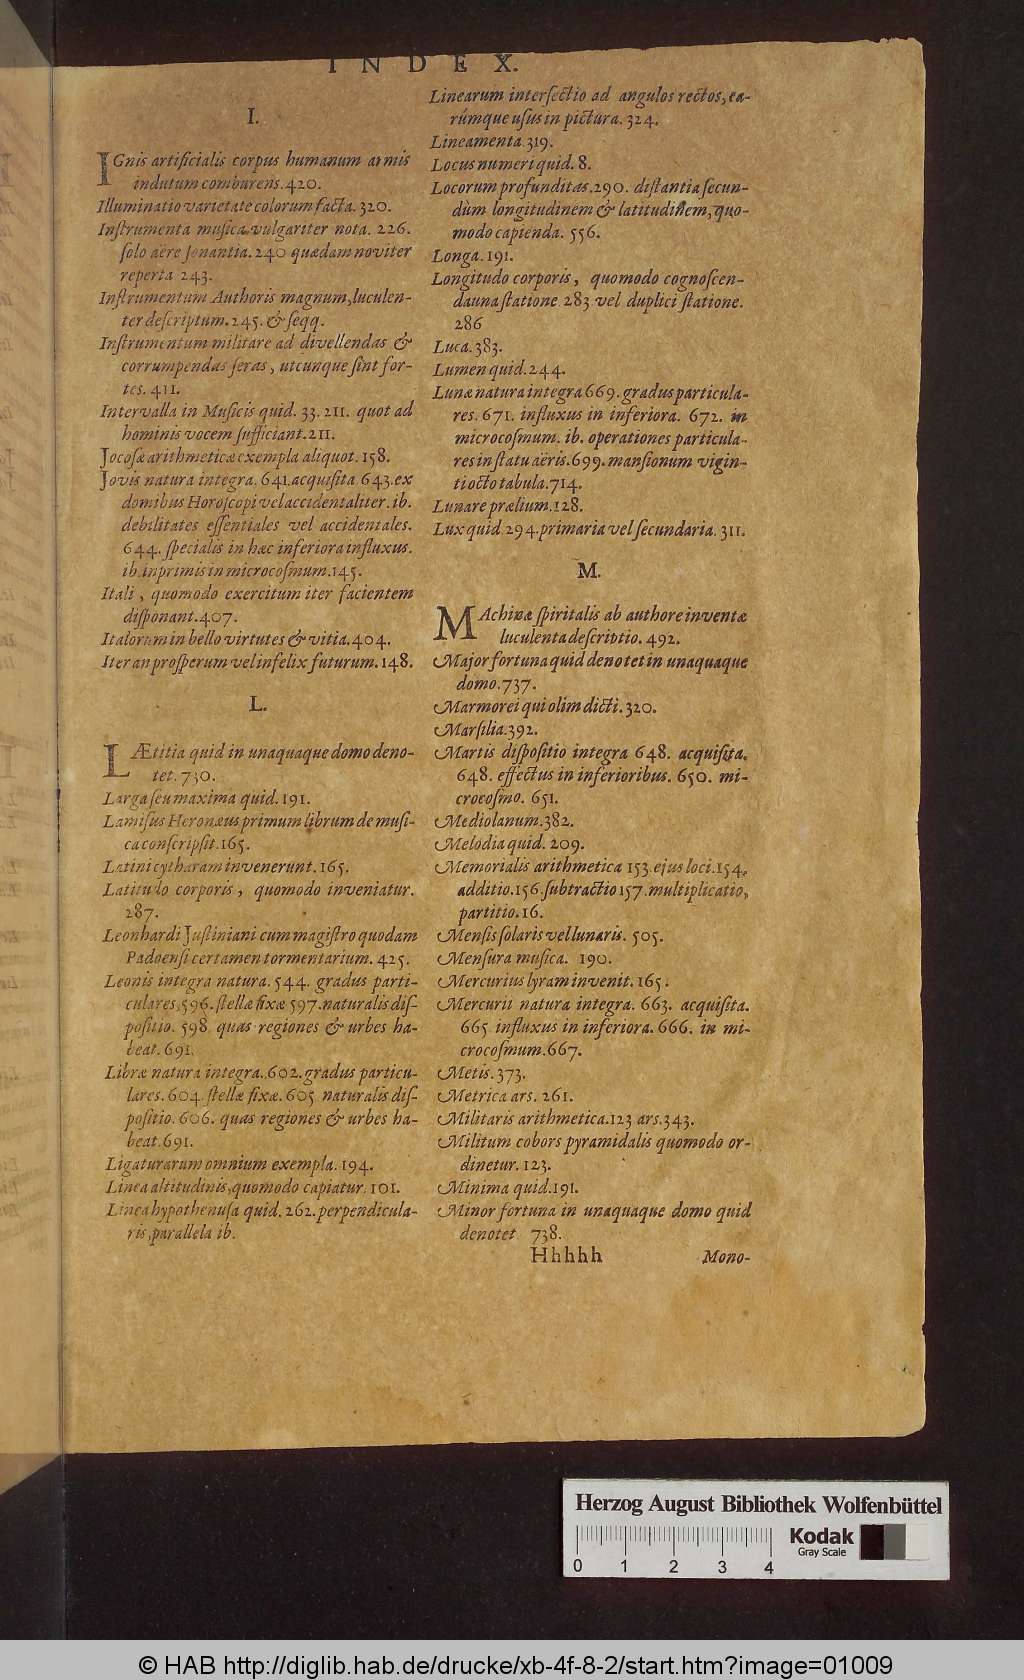 INDEX.
I.
IGnis artificialis corpus humanum armis
indutum comburens. 420.
Illuminatio varietate colorum facta. 320.
Instrumenta musica vulgariter nota. 226.
solo aëre sonantia. 240 quædam noviter
reperta 243.
Instrumentum Authoris magnum, luculen-
ter descriptum. 245. & seqq.
Instrumentum militare ad divellendas &
corrumpendas seras, utcunque sint for-
tes. 411.
Intervalla in Musicis quid. 33. 211. quot ad
hominis vocem sufficiant. 211.
Jocosæ arithmeticæ exempla aliquot. 158.
Jovis natura integra. 641. acquisita 643. ex
domibus Horoscopi vel accidentaliter. ib.
debilitates essentiales vel accidentales.
644. specialis in hæc inferiora influxus.
ib inprimis in microcosmum. 145.
Itali, quomodo exercitum iter facientem
disponant. 407.
Italorum in bello virtutes & vitia. 404.
Iter an prosperum vel infelix futurum. 148.
L.
LÆtitia quid in unaquaque domo deno-
tet. 730.
Larga seu maxima quid. 191.
Lamisus Heronæus primum librum de musi-
ca conscripsit. 165.
Latini cytharam invenerunt. 165.
Latitudo corporis, quomodo inveniatur.
287.
Leonhardi Justiniani cum magistro quodam
Padoensi certamen tormentarium. 425.
Leonis integra natura. 544. gradus parti-
culares, 596. stellæ fixæ 597. naturalis dis-
positio. 598. quas regiones & urbes ha-
beat. 691.
Libræ natura integra. 602. gradus particu-
lares. 604. stellæ fixæ. 605 naturalis dis-
positio. 606. quas regiones & urbes ha-
beat. 691.
Ligaturarum omnium exempla. 194.
Linea altitudinis, quomodo capiatur. 101.
Linea hypothenusa quid. 262. perpendicula-
ris, parallela ib.
Linearum intersectio ad angulos rectos, ea-
rúmque usus in pictura. 324.
Lineamenta 319.
Locus numeri quid. 8.
Locorum profunditas. 290. distantia secun-
dùm longitudinem & latitudinem, quo-
modo capienda. 556.
Longa. 191.
Longitudo corporis, quomodo cognoscen-
da una statione 283 vel duplici statione.
286
Luca. 383.
Lumen quid. 244.
Lunæ natura integra 669. gradus particula-
res. 671. influxus in inferiora. 672. in
microcosmum. ib. operationes particula-
res in statu aëris. 699. mansionum vigin-
ti octo tabula. 714.
Lunare prælium. 128.
Lux quid 294. primaria vel secundaria. 311.
M.
MAchinæ spiritalis ab authore inventæ
luculenta descriptio. 492.
Major fortuna quid denotet in unaquaque
domo. 737.
Marmorei qui olim dicti. 320.
Marsilia. 392.
Martis dispositio integra 648. acquisita.
648. effectus in inferioribus. 650. mi-
crocosmo. 651.
Mediolanum. 382.
Melodia quid. 209.
Memorialis arithmetica 153. ejus loci. 154.
additio. 156. subtractio 157. multiplicatio,
partitio. 16.
Mensis solaris vel lunaris. 505.
Mensura musica. 190.
Mercurius lyram invenit. 165.
Mercurii natura integra. 663. acquisita.
665 influxus in inferiora. 666. in mi-
crocosmum. 667.
Metis. 373.
Metrica ars. 261.
Militaris arithmetica. 123 ars. 343.
Militum cohors pyramidalis quomodo or-
dinetur. 123.
Minima quid. 191.
Minor fortuna in unaquaque domo quid
denotet 738.
Hhhhh Mono-
Herzog August Bibliothek Wolfenbüttel
Kodak
Gray Scale
0 1 2 3 4
© HAB http://diglib.hab.de/drucke/xb-4f-8-2/start.htm?image=01009